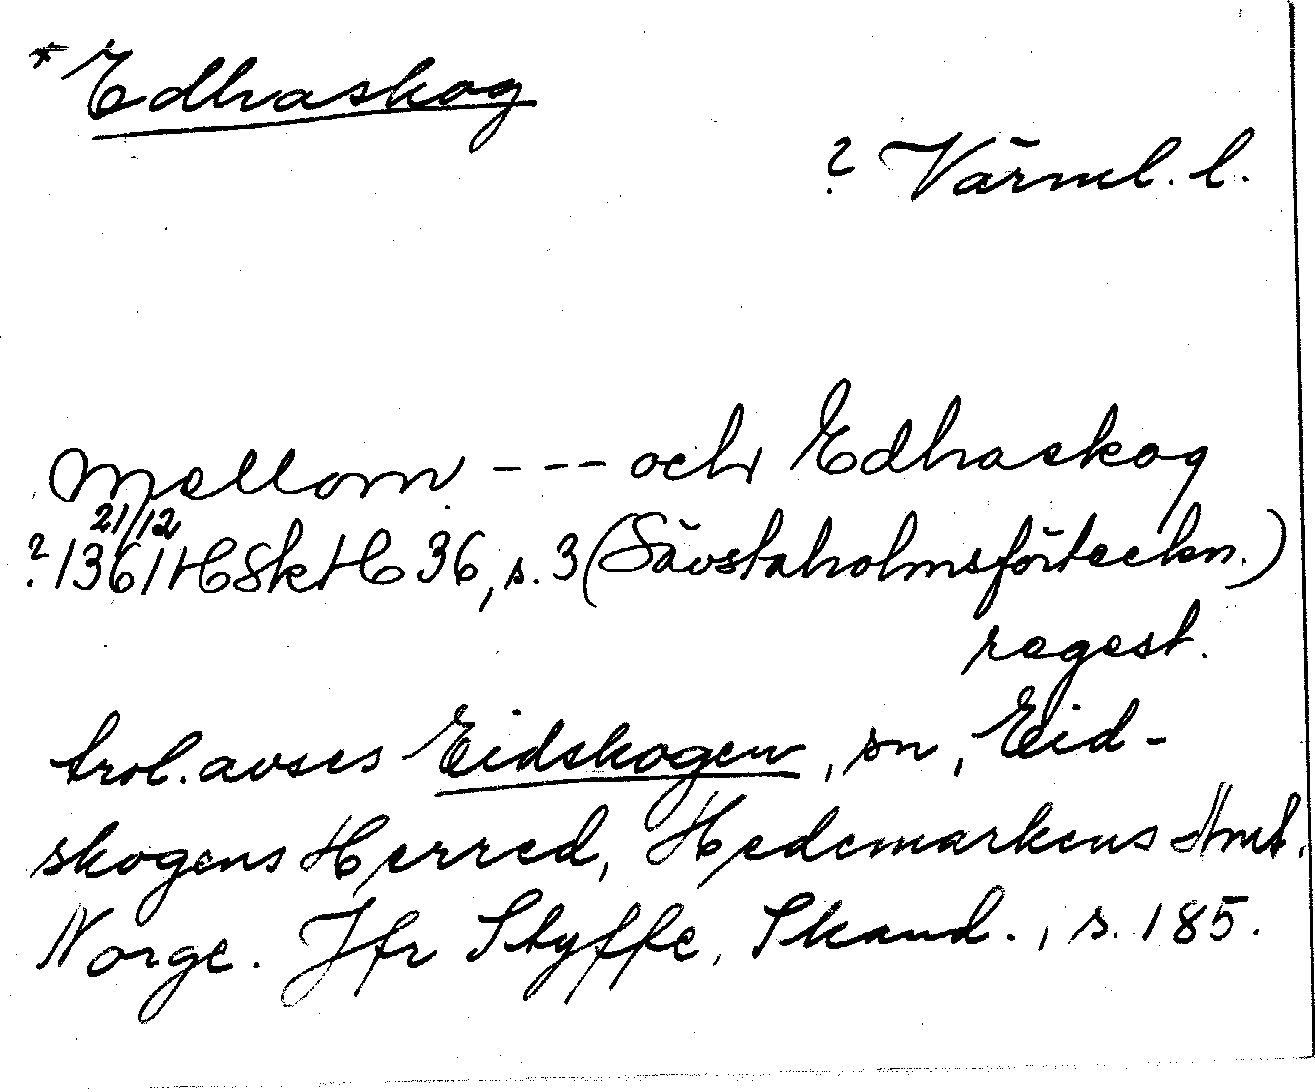 * Edhaskog
? Värml. l.
Mellom --- och Edhaskog
21/12
? 1361 HSkH 36, s. 3 (Sävstaholmsförteckn.)
regest.
trol. avses Eidskogen, sn, Eid-
skogens Herred, Hedemarkens Amt,
Norge. Jfr Styffe, Skand., s. 185.